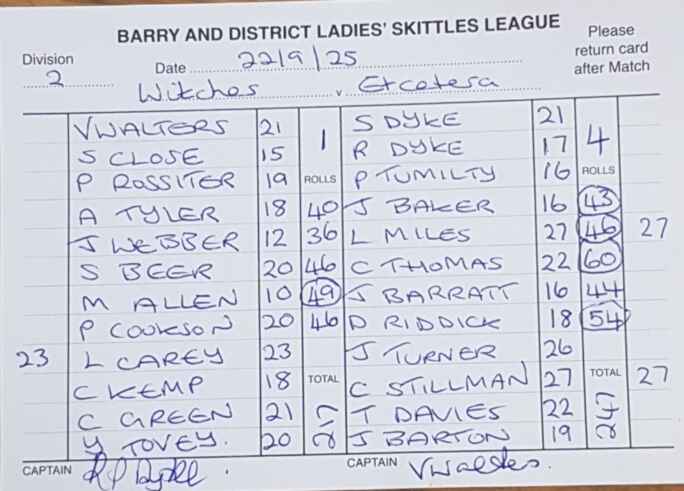 BARRY AND DISTRICT LADIES' SKITTLES LEAGUE
Please return card after Match
Division 2 Date 22/9/25
Witches v Etcetera
V WALTERS 21 1 S DYKE 21 4
S CLOSE 15 R DYKE 17
P ROSSITER 19 ROLLS P TUMILTY 16 ROLLS
A TYLER 18 40 J BAKER 16 43
J WEBBER 12 36 L MILES 27 46 27
S BEER 20 46 C THOMAS 22 60
M ALLEN 10 49 J BARRATT 16 44
P COOKSON 20 46 D RIDDICK 18 54
23 L CAREY 23 J TURNER 26
C KEMP 18 TOTAL C STILLMAN 27 TOTAL 27
C GREEN 21 217 T DAVIES 22 247
Y TOVEY. 20 J BARTON 19
CAPTAIN CAPTAIN VWalters.